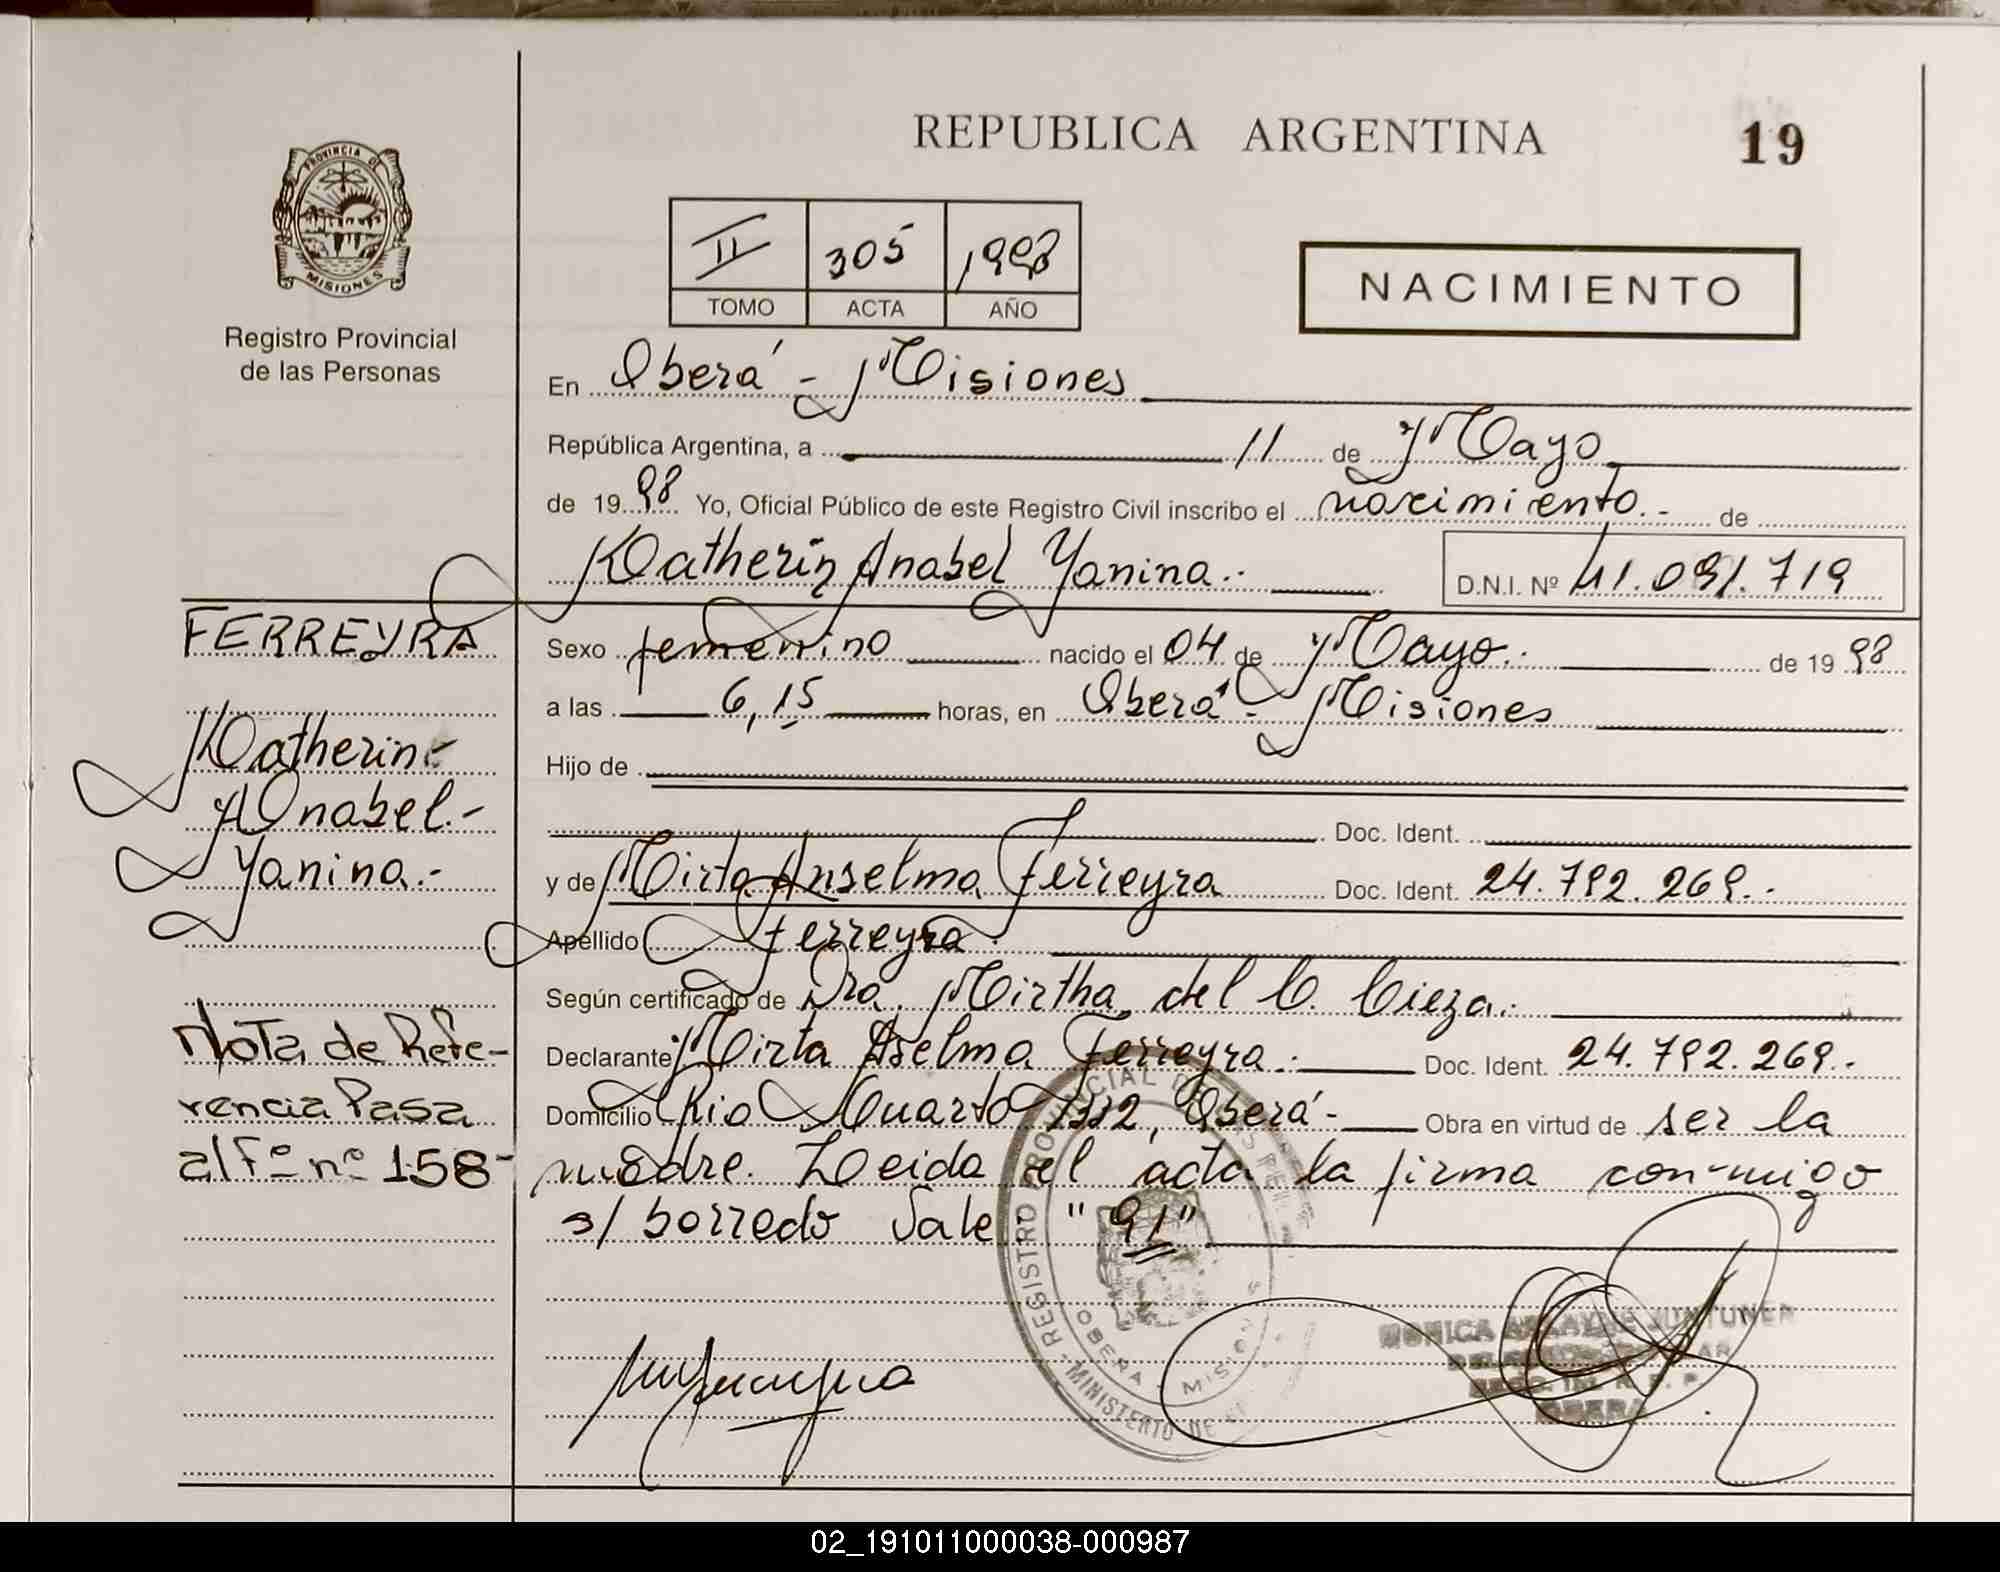 REPUBLICA ARGENTINA
19
PROVINCIA DE
MISIONES
Registro Provincial
de las Personas
II 305 1998
TOMO ACTA AÑO
NACIMIENTO
En Oberá - Misiones
República Argentina, a 11 de Mayo
de 1998 Yo, Oficial Público de este Registro Civil inscribo el nacimiento.- de
Katherin Anabel Yanina.- D.N.I. Nº 41.091.719
FERREYRA
Katherin.-
Anabel.-
Yanina.-
Nota de Refe-
rencia Pasa
al Fº nº 158-
Sexo femenino nacido el 04 de Mayo.- de 1998
a las 6,15 horas, en Oberá - Misiones
Hijo de
Doc. Ident.
y de Mirta Anselma Ferreyra Doc. Ident. 24.792.269.-
Apellido Ferreyra.
Según certificado de Dra. Mirtha del C. Cieza.-
Declarante Mirta Aselma Ferreyra.- Doc. Ident. 24.792.269.-
Domicilio Rio Cuarto 1332, Oberá- Obra en virtud de ser la
madre. Leida el acta la firma con-migo
s/ borredo Vale "91"
REGISTRO PROVINCIAL DE LAS PERS
OBERA - MISIONES
MINISTERIO DE
MONICA JUNTUNEN
OBERA
02_191011000038-000987